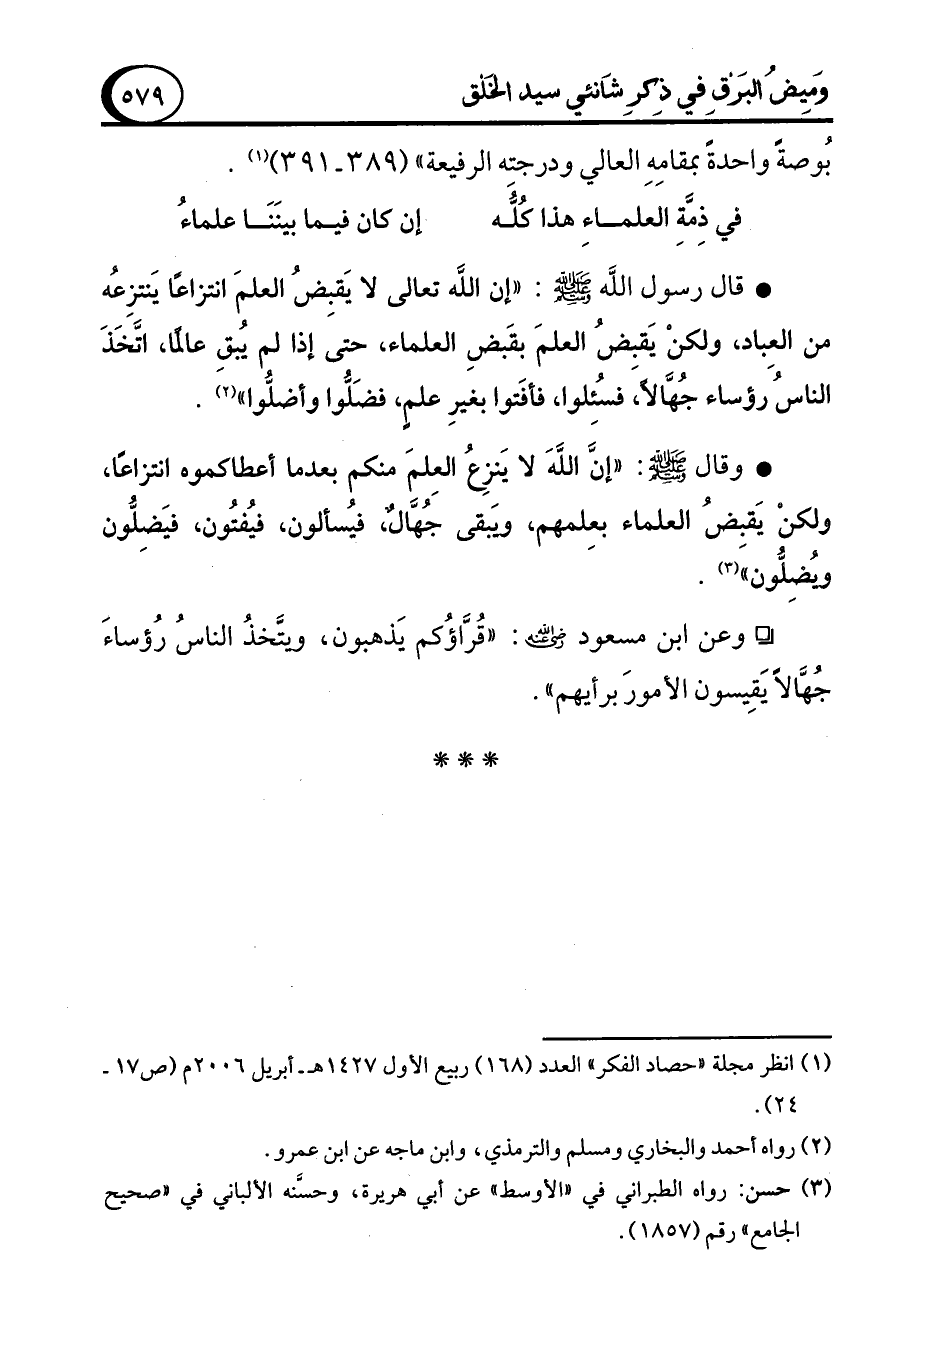 وَمِيضُ البَرْقِ في ذِكرِ شَانئي سيد الخَلْق
٥٧٩
بُوصةً واحدةً بمقامِهِ العالي ودرجتِه الرفيعة» (٣٨٩ـ٣٩١)(١) .
في ذِمَّةِ العلمـــاءِ هذا كُلُّــه إن كان فيـما بينَنَــا علماءُ
● قال رسول اللَّه ﷺ : «إن اللَّه تعالى لا يَقبِضُ العلمَ انتزاعًا يَنتزِعُه
من العِباد، ولكنْ يَقبِضُ العلمَ بقَبضِ العلماء، حتى إذا لم يُبقِ عالمًا، اتَّخَذَ
الناسُ رؤساء جُهَّالاً، فسُئِلوا، فأفتَوا بغيرِ علمٍ، فضَلُّوا وأضلُّوا»(٢) .
● وقال ﷺ: «إنَّ اللَّهَ لا يَنزِعُ العِلمَ منكم بعدما أعطاكموه انتزاعًا،
ولكنْ يَقبِضُ العلماء بعِلمهم، ويَبقى جُهَّالٌ، فيُسألون، فيُفتُون، فيَضِلُّون
ويُضِلُّون»(٣) .
❑ وعن ابن مسعود رضي الله عنه : «قُرَّاؤُكم يَذهبون، ويتَّخذُ الناسُ رُؤساءَ
جُهَّالاً يَقِيسون الأمورَ برأيهم» .
* * *
(١) انظر مجلة «حصاد الفكر» العدد (١٦٨) ربيع الأول ١٤٢٧هـ ـ أبريل ٢٠٠٦م (ص١٧ ـ
٢٤).
(٢) رواه أحمد والبخاري ومسلم والترمذي، وابن ماجه عن ابن عمرو .
(٣) حسن: رواه الطبراني في «الأوسط» عن أبي هريرة، وحسَّنه الألباني في «صحيح
الجامع» رقم (١٨٥٧).